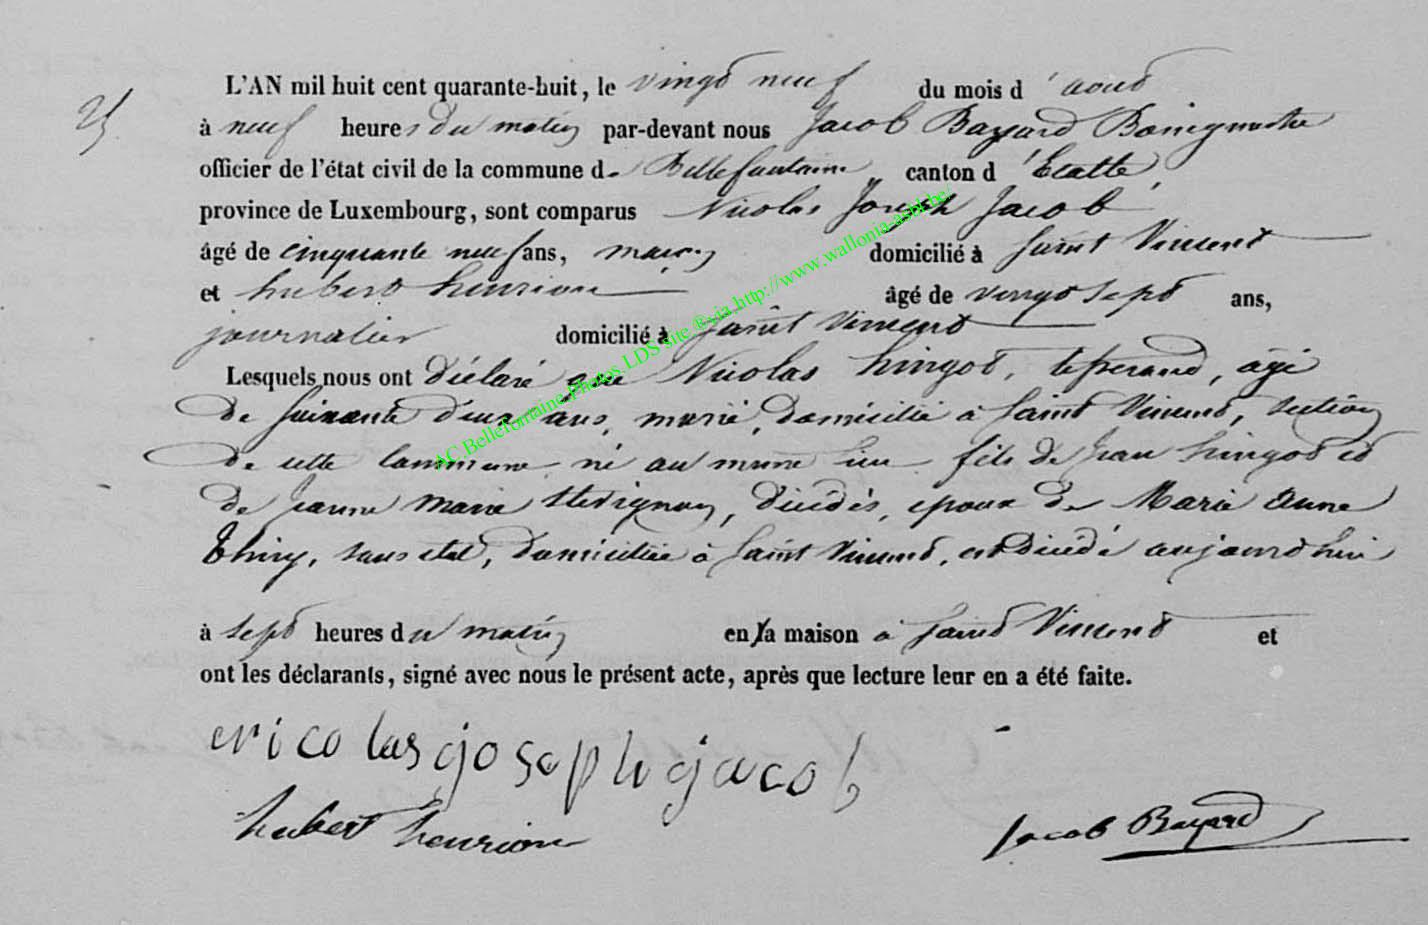 L'AN mil huit cent quarante-huit, le vingt neuf du mois d'aout
25
à neuf heures du matin par-devant nous Jacob Bayard Bourgmestre
officier de l'état civil de la commune de Bellefontaine canton d'Etalle,
province de Luxembourg, sont comparus Nicolas Joseph Jacob
âgé de cinquante neuf ans, maçon domicilié à Saint Vincent
et hubert henrion âgé de vingt sept ans,
journalier domicilié à Saint Vincent
Lesquels nous ont déclaré que Nicolas hingot, tisserand, âgé
de soixante deux ans, marié, domicilié à Saint Vincent, section
de cette commune né au même lieu fils de Jean hingot et
de Jeanne Marie, décédés, époux de Marie Anne
thiry, sans état, domiciliée à Saint Vincent, est décédé aujourd'hui
à sept heures du matin en sa maison à Saint Vincent et
ont les déclarants, signé avec nous le présent acte, après que lecture leur en a été faite.
nicolas joseph jacob
hubert henrion Jacob Bayard
AC Bellefontaine, Photos LDS site ® via http://www.wallonia-asbl.be/